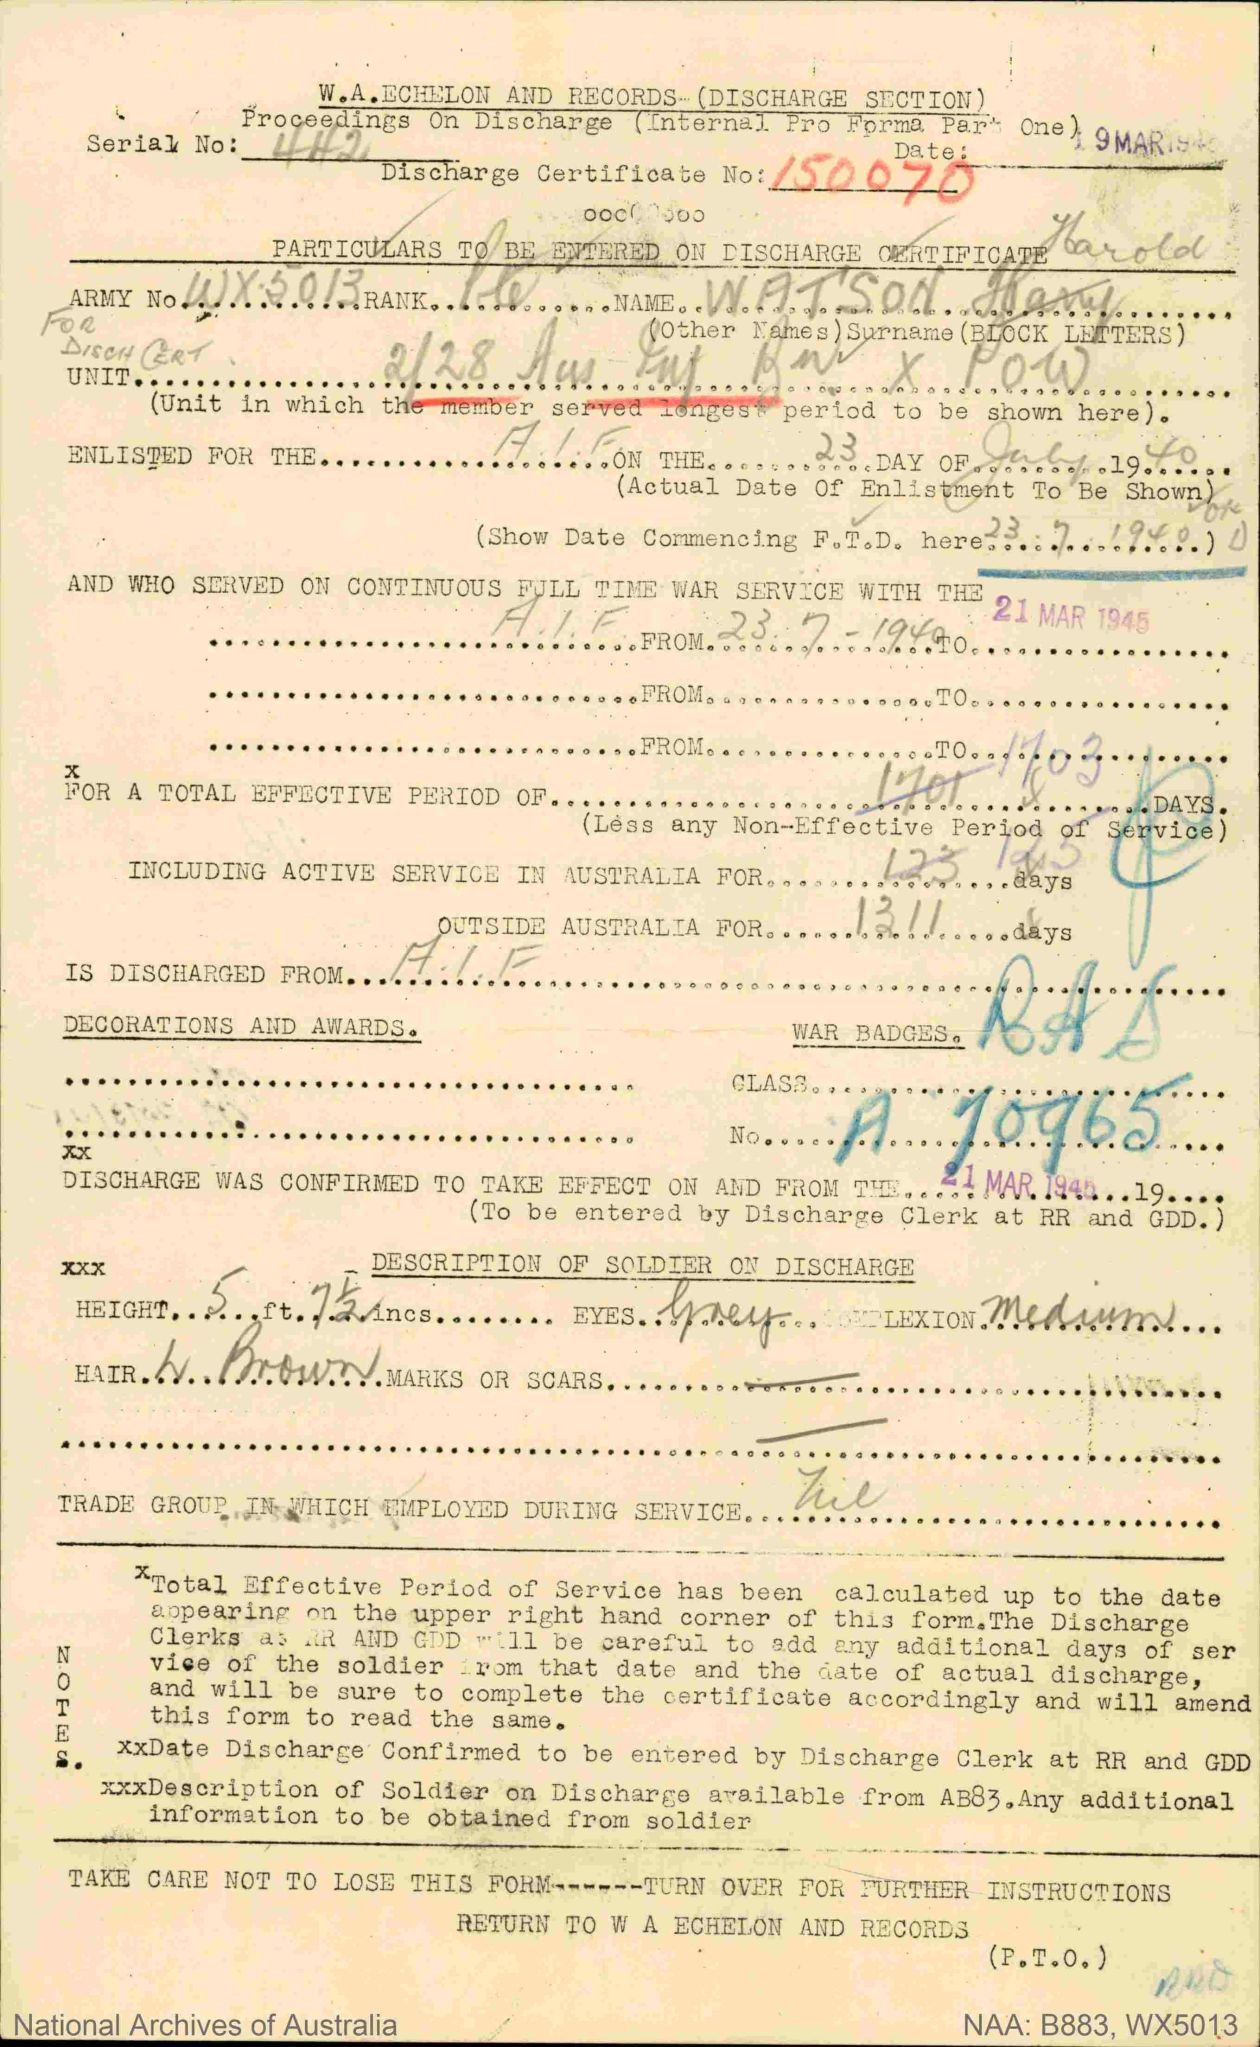 W.A.ECHELON AND RECORDS-(DISCHARGE SECTION)
Proceedings On Discharge (Internal Pro Forma Part One)
Serial No: 442 Date: 19 MAR 1945
Discharge Certificate No: 150070
PARTICULARS TO BE ENTERED ON DISCHARGE CERTIFICATE Harold
ARMY No. WX.5013 RANK. Pte NAME. WATSON Harry
(Other Names) Surname (BLOCK LETTERS)
FOR
DISCH CERT.
UNIT. 2/28 Aus Inf Bn X POW
(Unit in which the member served longest period to be shown here).
ENLISTED FOR THE A.I.F ON THE 23 DAY OF July 1940
(Actual Date Of Enlistment To Be Shown)
(Show Date Commencing F.T.D. here 23.7.1940)
AND WHO SERVED ON CONTINUOUS FULL TIME WAR SERVICE WITH THE
A.I.F FROM 23.7-1940 TO 21 MAR 1945
FROM TO
FROM TO
x
FOR A TOTAL EFFECTIVE PERIOD OF 1701 1703 DAYS.
(Less any Non-Effective Period of Service)
INCLUDING ACTIVE SERVICE IN AUSTRALIA FOR 123 125 days
OUTSIDE AUSTRALIA FOR 1311 days
IS DISCHARGED FROM A.I.F
DECORATIONS AND AWARDS. WAR BADGES. RAS
CLASS
No. A 70965
xx
DISCHARGE WAS CONFIRMED TO TAKE EFFECT ON AND FROM THE 21 MAR 1945 19
(To be entered by Discharge Clerk at RR and GDD.)
xxx DESCRIPTION OF SOLDIER ON DISCHARGE
HEIGHT 5 ft. 7½ incs EYES Grey COMPLEXION Medium
HAIR L Brown MARKS OR SCARS —
—
TRADE GROUP IN WHICH EMPLOYED DURING SERVICE Nil
NOTES.
xTotal Effective Period of Service has been calculated up to the date
appearing on the upper right hand corner of this form.The Discharge
Clerks as RR AND GDD will be careful to add any additional days of ser
vice of the soldier from that date and the date of actual discharge,
and will be sure to complete the certificate accordingly and will amend
this form to read the same.
xxDate Discharge Confirmed to be entered by Discharge Clerk at RR and GDD
xxxDescription of Soldier on Discharge available from AB83.Any additional
information to be obtained from soldier
TAKE CARE NOT TO LOSE THIS FORM------TURN OVER FOR FURTHER INSTRUCTIONS
RETURN TO W A ECHELON AND RECORDS
(P.T.O.)
National Archives of Australia NAA: B883, WX5013